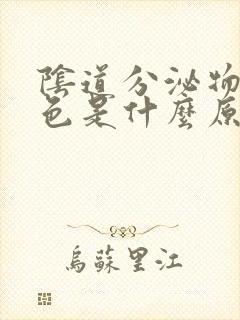 陰道分泌物
色是什麼原
烏蘇里江